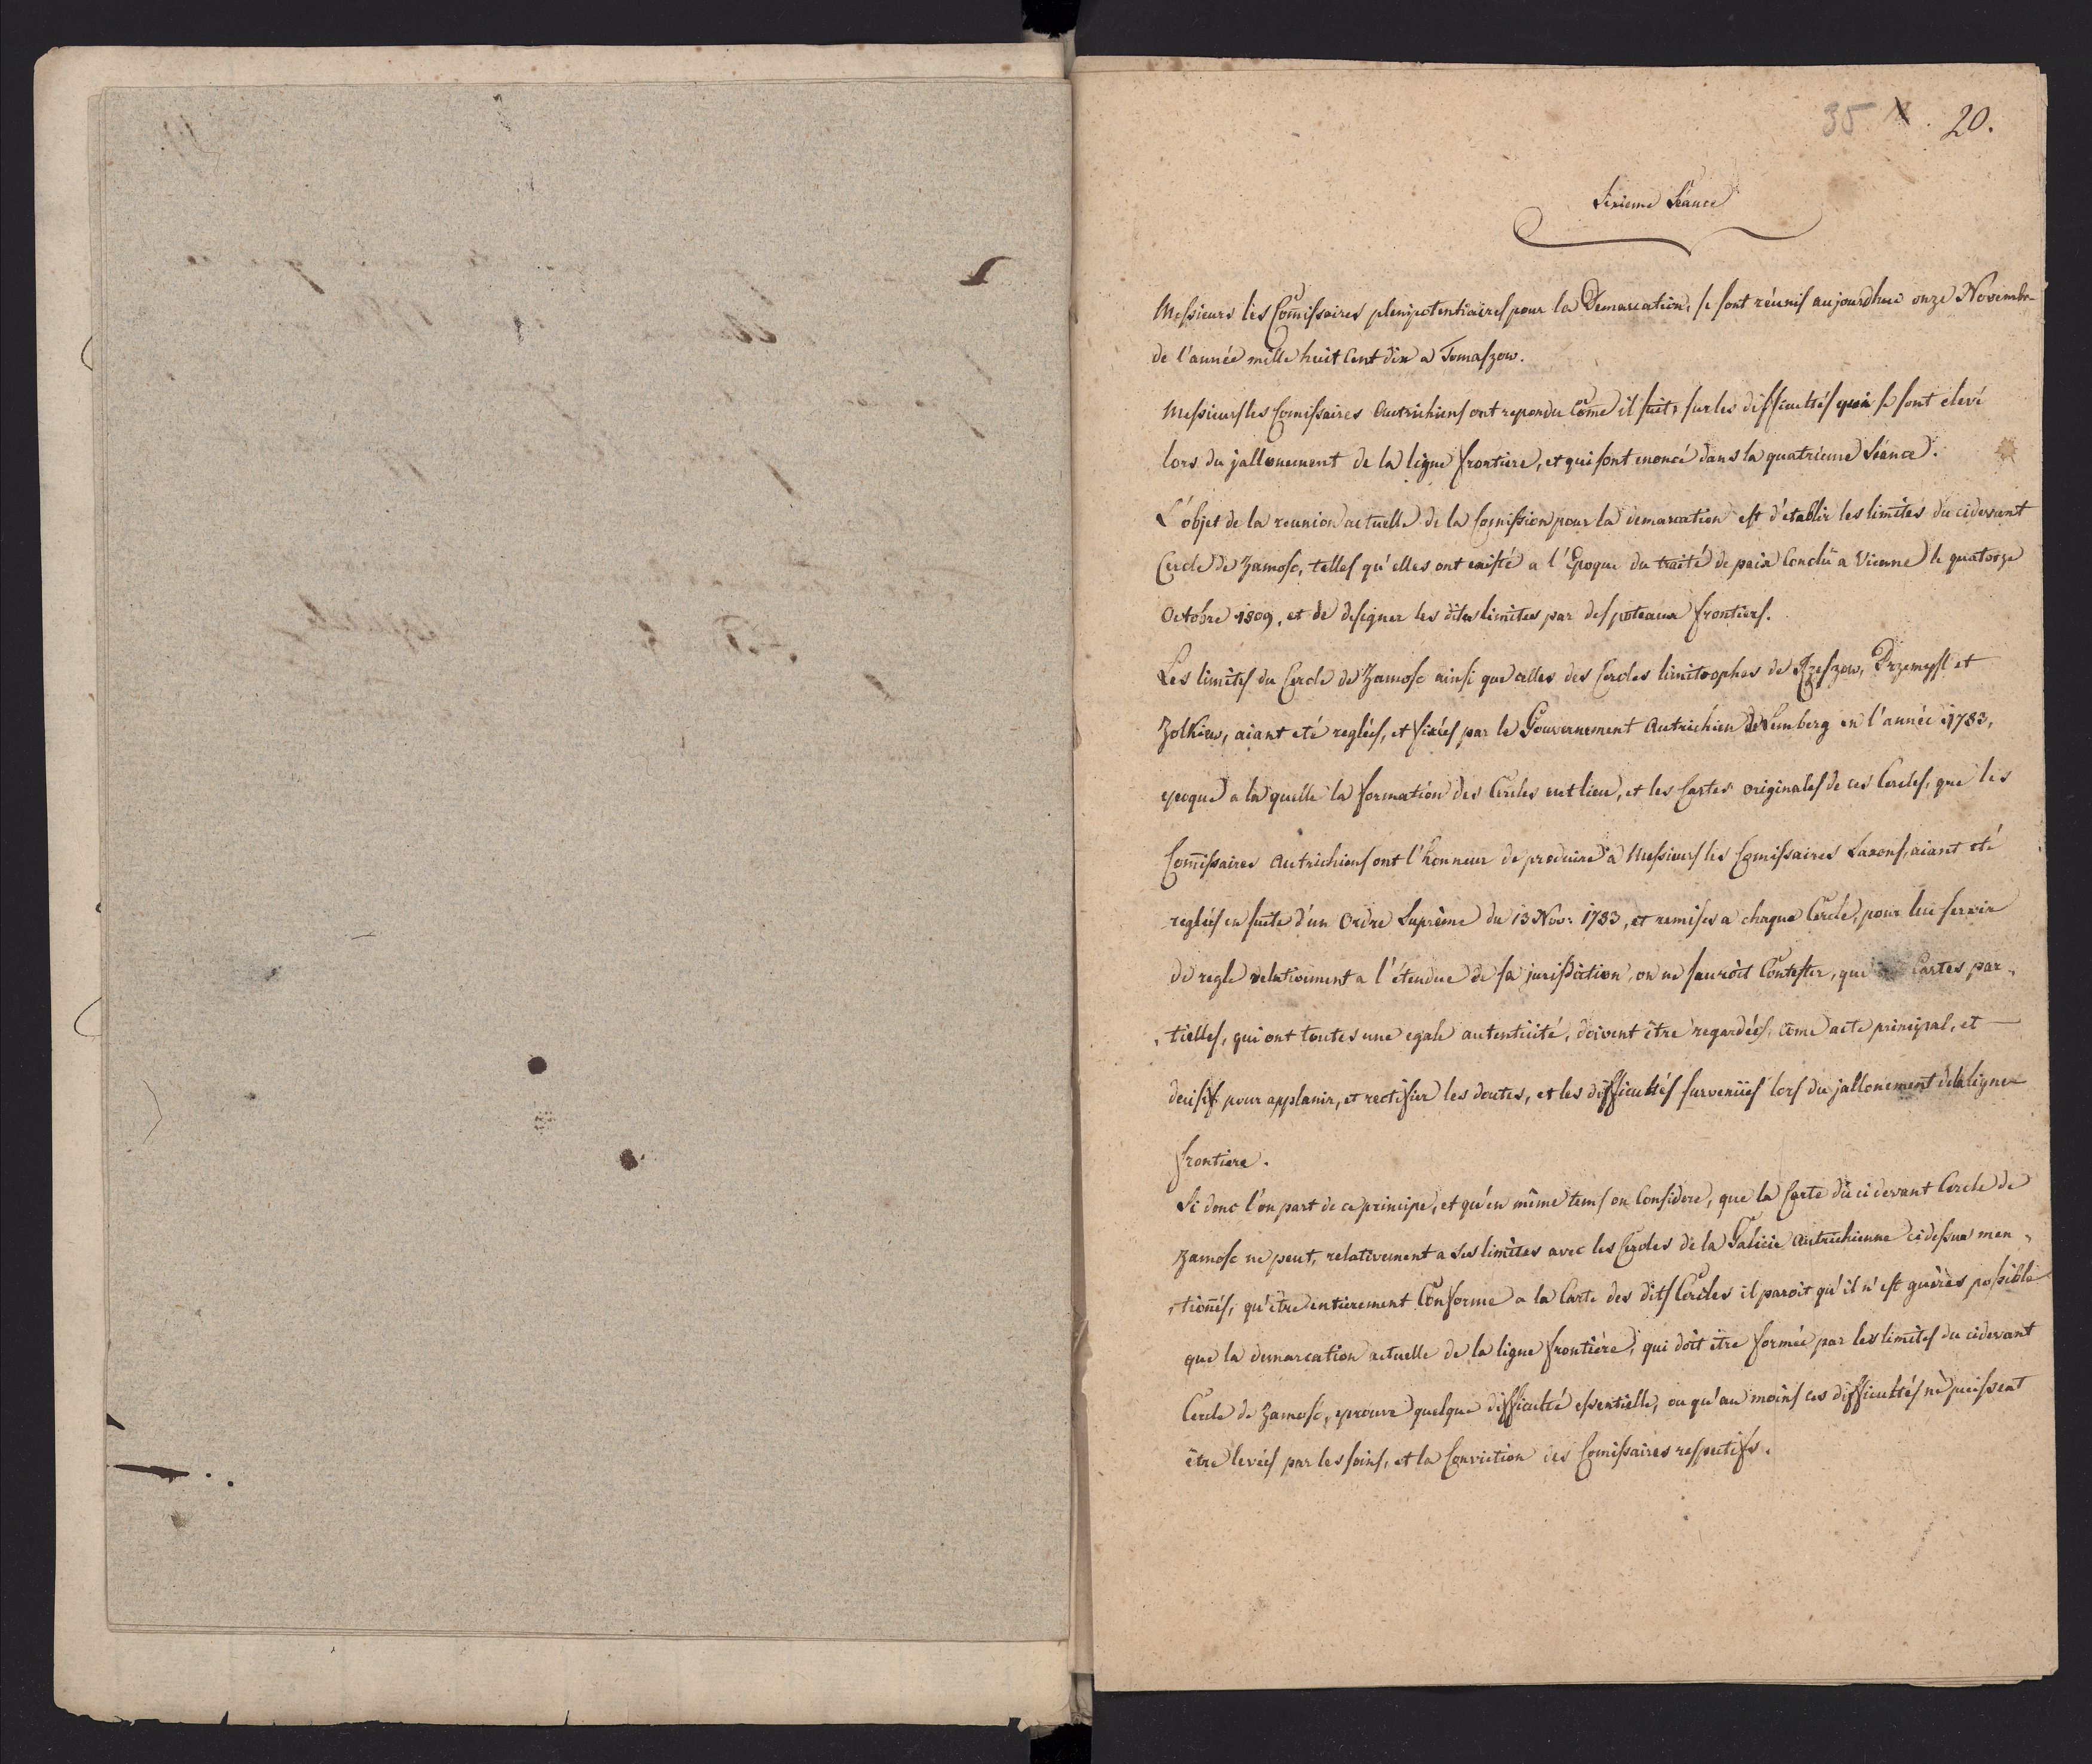 35 20.
Sixieme Séance
Messieurs les Com̄issaires plenipotentiaires pour la Demarcation, se sont réunis aujourdhui onze Novembre
de l'année mille huit Cent dix a Tomaszow.
Messieurs les Com̄issaires Autrichiens ont repondu Com̄e il suit, sur les difficultés qui se sont elevé
lors du jallonement de la ligne frontiere, et qui sont enoncé dans la quatrieme Séance.
L'objet de la reunion actuelle de la Com̄ission pour la demarcation est d'établir les limites du cidevant
Cercle de Zamosc, telles qu'elles ont existé a l'Epoque du traité de paix Conclû a Vienne le quatorze
Octobre 1809, et de designer les dites limites par des poteaux frontiers.
Les limites du Cercle de Zamosc ainsi que celles des Cercles limitrophes de Rzeszow, Przemysl et
Zolkiew, aiant eté reglées, et fixées par le Gouvernement Autrichien de Lemberg en l'année 1783,
epoque a la quelle la formation des Cercles eut lieu, et les Cartes originales de ces Cercles, que les
Com̄issaires Autrichiens ont l'honneur de produire à Messieurs les Com̄issaires Saxons, aiant eté
reglées en suite d'un Ordre Suprème du 13 Nov: 1783, et remises a chaque Cercle, pour lui servir
de regle relativement a l'étendue de sa jurisdiction, on ne sauroit Contester, que Cartes par-
-tielles, qui ont toutes une egale autenticité, doivent être regardées, com̄e acte principal, et
decisif pour applanir, et rectifier les doutes, et les difficultés survenües lors du jallonement de la ligne
frontiere.
Si donc l'on part de ce principe, et qu'en même tems on Considere, que la Carte du cidevant Cercle de
Zamosc ne peut, relativement a ses limites avec les Cercles de la Galicie Autrichienne cidessus men-
-tion̄és, qu'être entierement Conforme a la Carte des dits Cercles il paroit qu'il n'est guères possible
que la demarcation actuelle de la ligne frontière, qui doit être formée par les limites du cidevant
Cercle de Zamosc, eprouve quelque difficulté essentielle, ou qu'au moins ces difficultés ne puissent
être levées par les soins, et la Conviction des Com̄issaires respectifs.